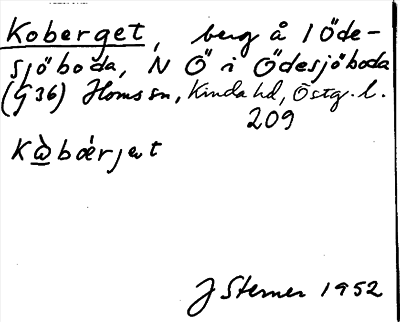 Koberget, berg å 1 Öde-
sjöboda, N Ö i Ödesjöboda
(G36) Horns sn, Kinda hd, Östg. l.
209
Kὼbǽrjət
J Sterner 1952